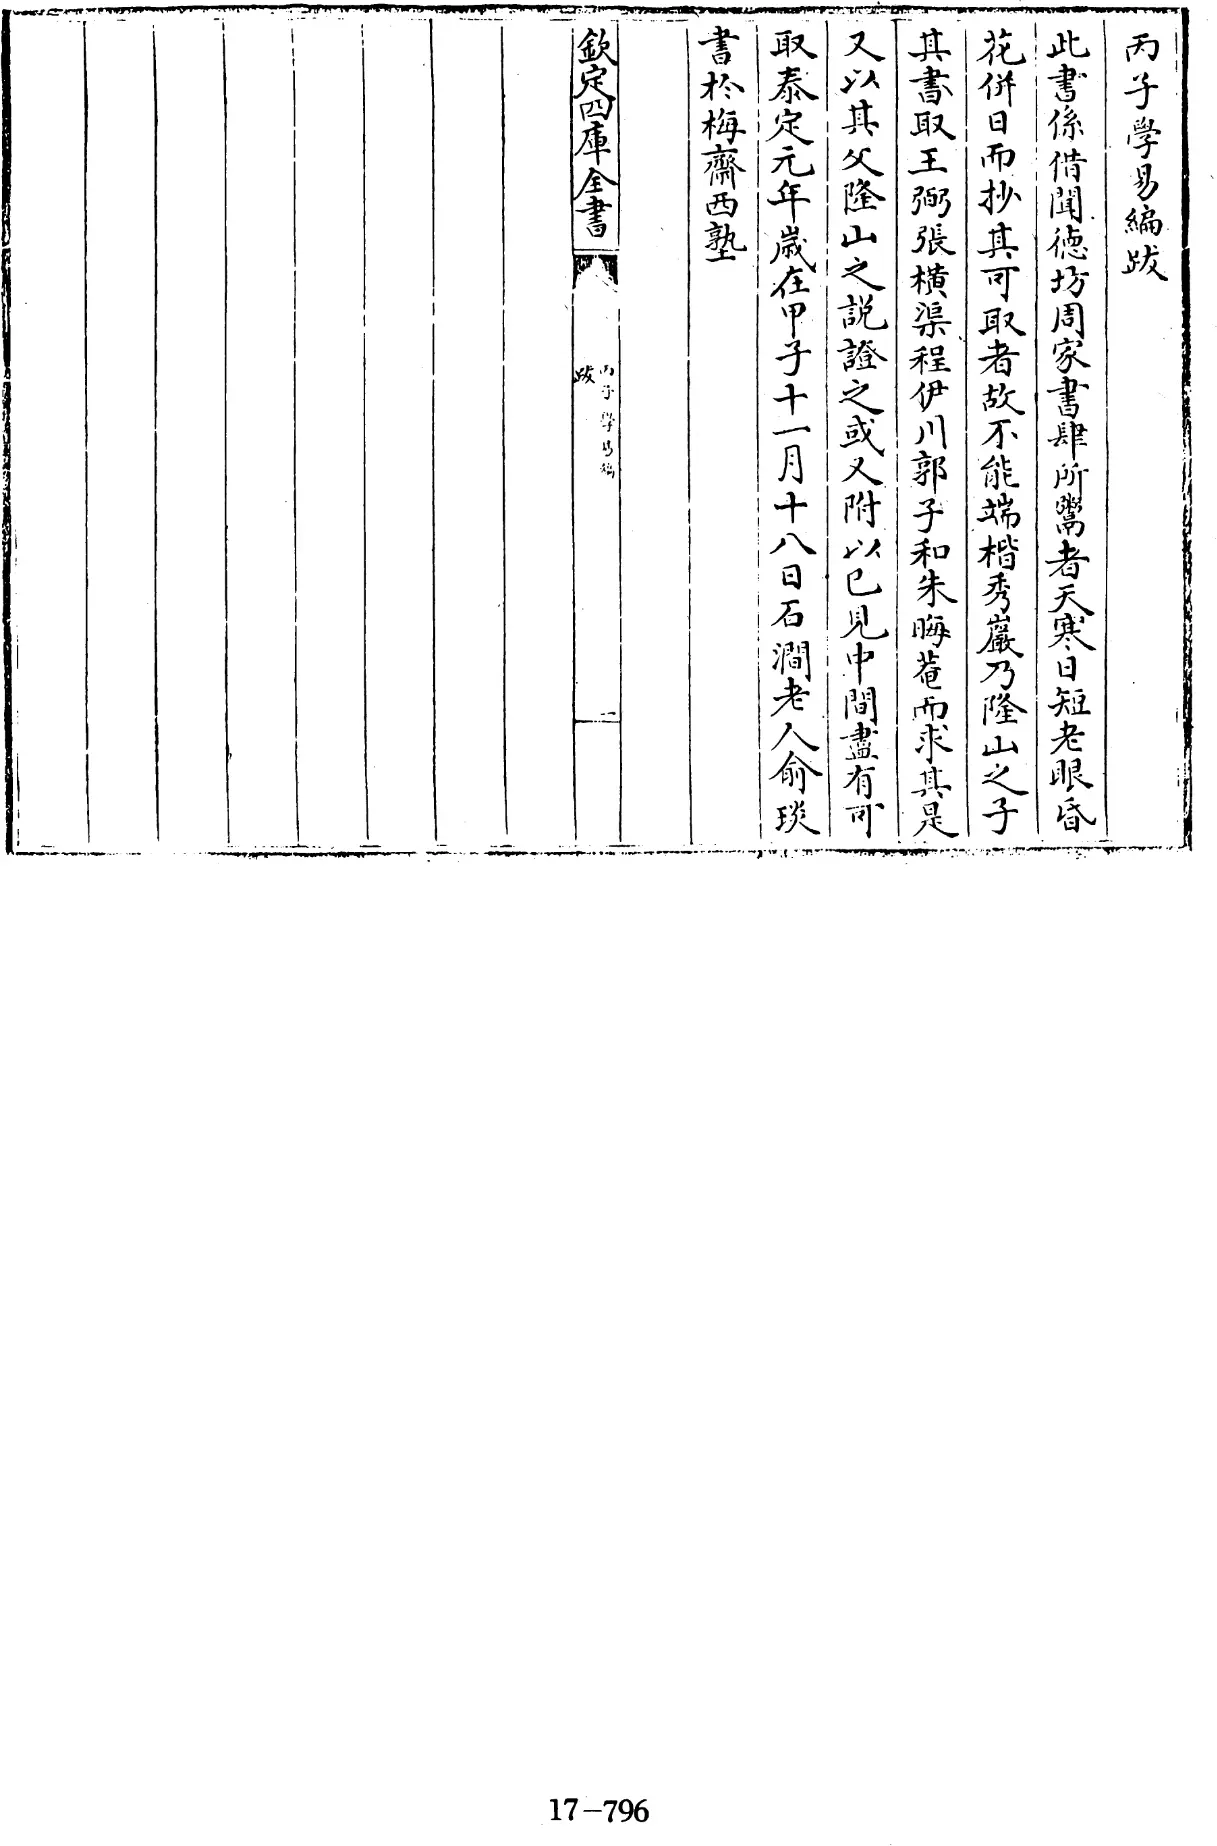 丙子學易編跋
此書係借聞徳坊周家書肆所鬻者天寒日短老眼昏
花併日而抄其可取者故不能端楷秀巖乃隆山之子
其書取王弼張橫渠程伊川郭子和朱晦菴而求其是
又以其父隆山之説證之或又附以已見中間盡有可
取泰定元年歳在甲子十一月十八日石澗老人俞琰
書於梅齋西塾
欽定四庫全書
丙子學易編
跋
一
17-796